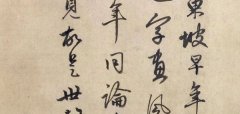 東坡早年
字畫風
年同論
見故是世